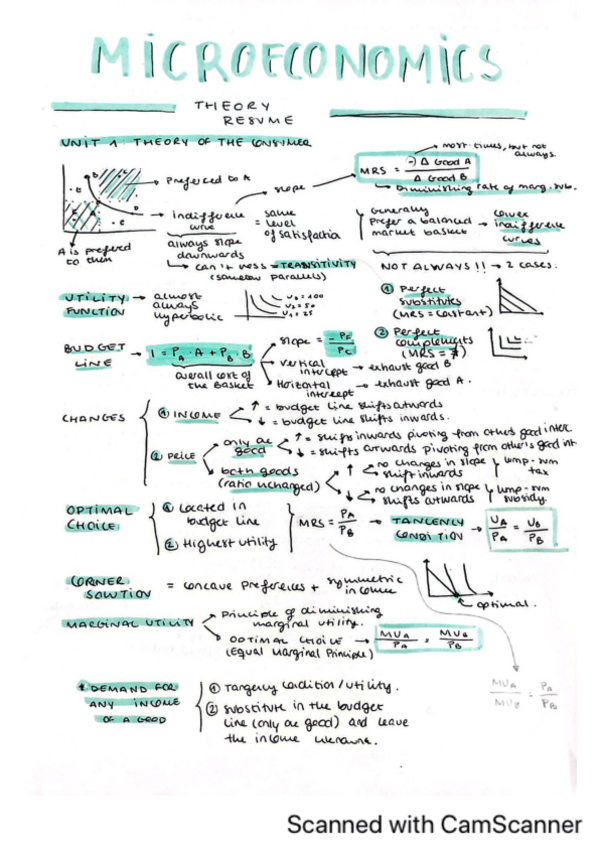 MICROECONOMICS
THEORY
RESUME
UNIT 1: THEORY OF THE CONSUMER
most times, but not
always.
MRS = (-) Δ Good A / Δ Good B
Diminishing rate of marg. sub.
preferred to A
slope
Indifference
curve
= same
level
of satisfaction
A is preferred
to them
always slope
downwards
can't cross = TRANSITIVITY
(somehow parallels)
Generally
Prefer a balanced
market basket
→ convex
indifference
curves
NOT ALWAYS!! → 2 cases:
① Perfect
substitutes
(MRS = constant)
② Perfect
complements
UTILITY
FUNCTION
→ almost
always
hyperbolic
U3 = 100
U2 = 50
U1 = 25
BUDGET
LINE
→ I = PA · A + PB · B
overall cost of
the basket
slope = -PF / PC
vertical
intercept → exhaust good B
Horizontal
intercept → exhaust good A.
CHANGES
① INCOME
↑ = budget line shifts outwards
↓ = budget line shifts inwards.
② PRICE
only one
good
↑ = shifts inwards pivoting from other's good inter.
↓ = shifts outwards pivoting from other's good int
both goods
(ratio unchanged)
↑ no changes in slope
shift inwards
lump-sum
tax
↓ no changes in slope
shifts outwards
lump-sum
subsidy.
OPTIMAL
CHOICE
① Located in
budget line
② Highest utility
MRS = PA / PB → TANGENCY
CONDITION → UA / PA = UB / PB
CORNER
SOLUTION
= concave preferences + symmetric
income
optimal.
MARGINAL UTILITY
Principle of diminishing
marginal utility.
OPTIMAL CHOICE → MUA / PA = MUB / PB
(Equal Marginal Principle)
MUA / MUB = PA / PB
DEMAND FOR
ANY INCOME
OF A GOOD
① Tangency condition / utility.
② substitute in the budget
line (only one good) and leave
the income unknown.
Scanned with CamScanner